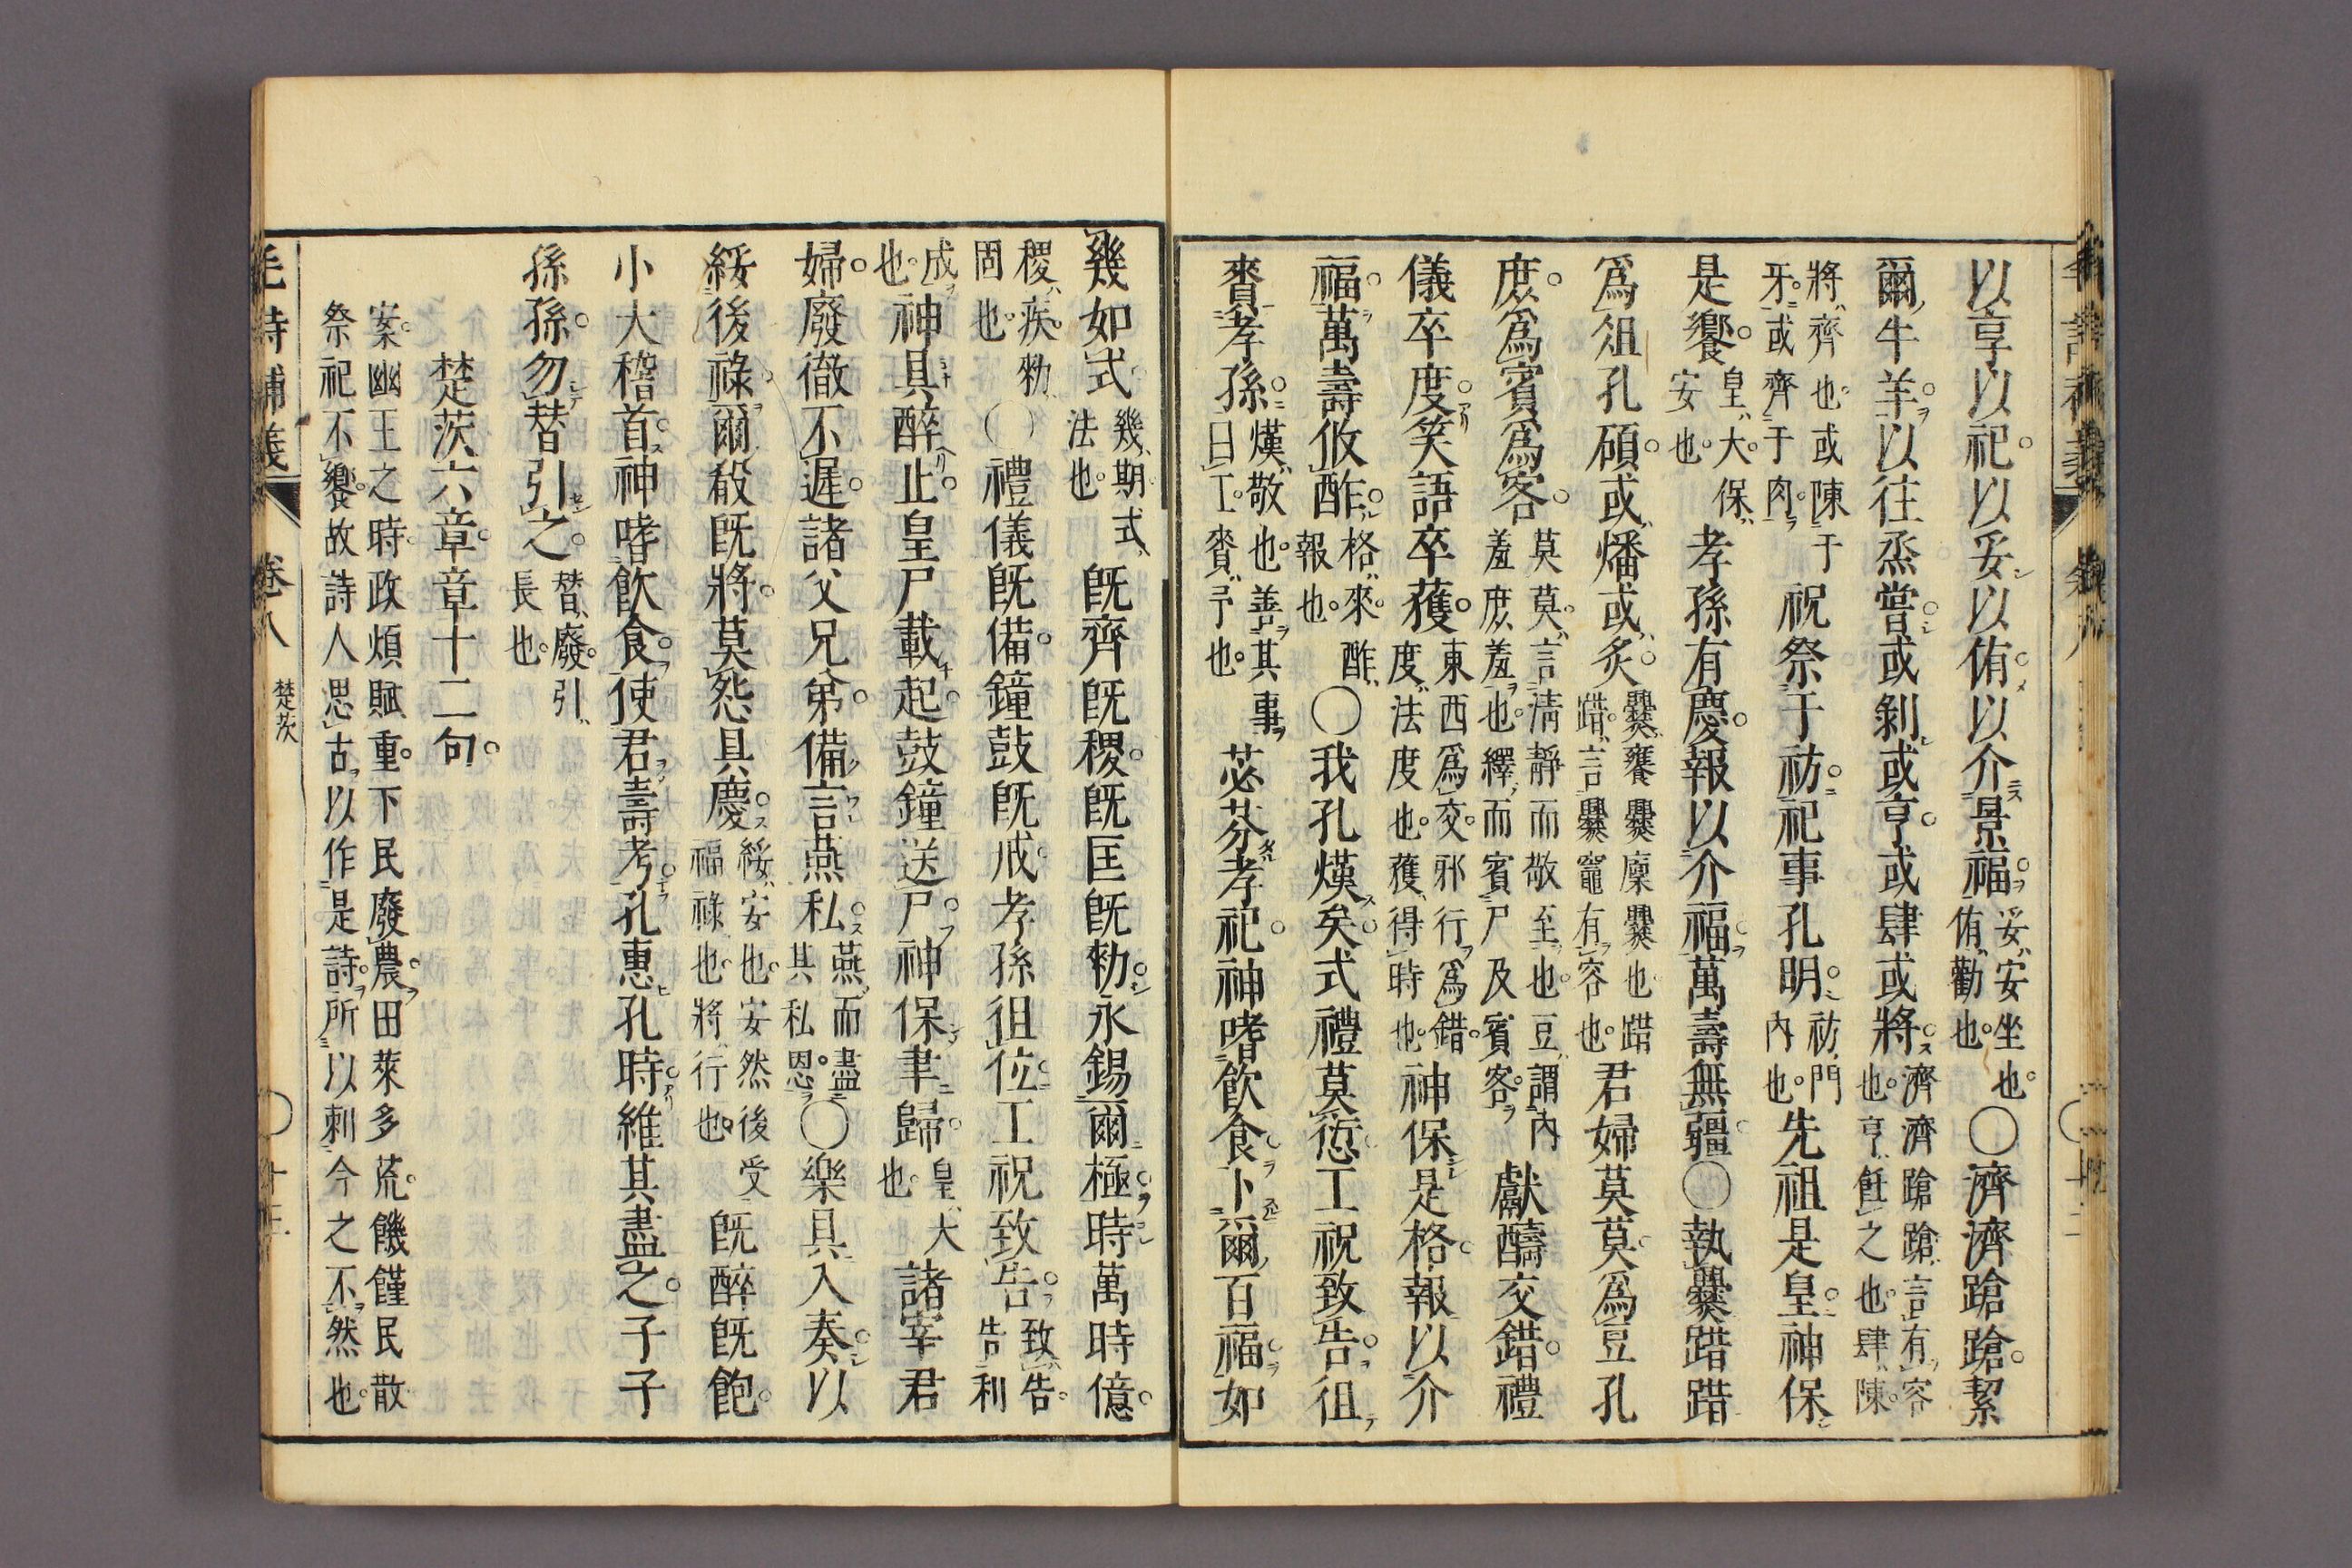 以享以祀以妥以侑以介景福妥安坐也侑勸也〇濟濟蹌蹌絜
爾牛羊以往烝嘗或剝或亨或肆或將濟濟蹌蹌言有容也亨飪之也肆陳
將齊也或陳于牙或齊于肉祝祭于祊祀事孔明祊門內也先祖是皇神保
是饗皇大保安也孝孫有慶報以介福萬壽無疆〇執爨踖踖
爲俎孔碩或燔或炙爨饔爨廩爨也踖踖言爨竈有容也君婦莫莫爲豆孔
庶爲賓爲客莫莫言淸靜而敬至也豆謂內羞庶羞也繹而賓尸及賓客獻醻交錯禮
儀卒度笑語卒獲東西爲交邪行爲錯度法度也獲得時也神保是格報以介
福萬壽攸酢格來酢報也〇我孔熯矣式禮莫愆工祝致告徂
賚孝孫熯敬也善其事曰工賚予也苾芬孝祀神嗜飮食卜爾百福如
幾如式幾期式法也旣齊旣稷旣匡旣勑永錫爾極時萬時億
稷疾勑固也()禮儀旣備鐘鼓旣戒孝孫徂位工祝致告致告告利
成也神具醉止皇尸載起鼓鐘送尸神保聿歸皇大也諸宰君
婦廢徹不遲諸父兄弟備言燕私燕而盡其私恩〇樂具入奏以
綏後祿爾殽旣將莫怨具慶綏安也安然後受福祿也將行也旣醉旣飽
小大稽首神嗜飮食使君壽考孔惠孔時維其盡之子子
孫孫勿替引之替廢引長也
楚茨六章章十二句
案幽王之時政煩賦重下民廢農田萊多荒饑饉民散
祭祀不饗故詩人思古以作是詩所以刺今之不然也
毛詩補義 卷八 楚茨 〇十三